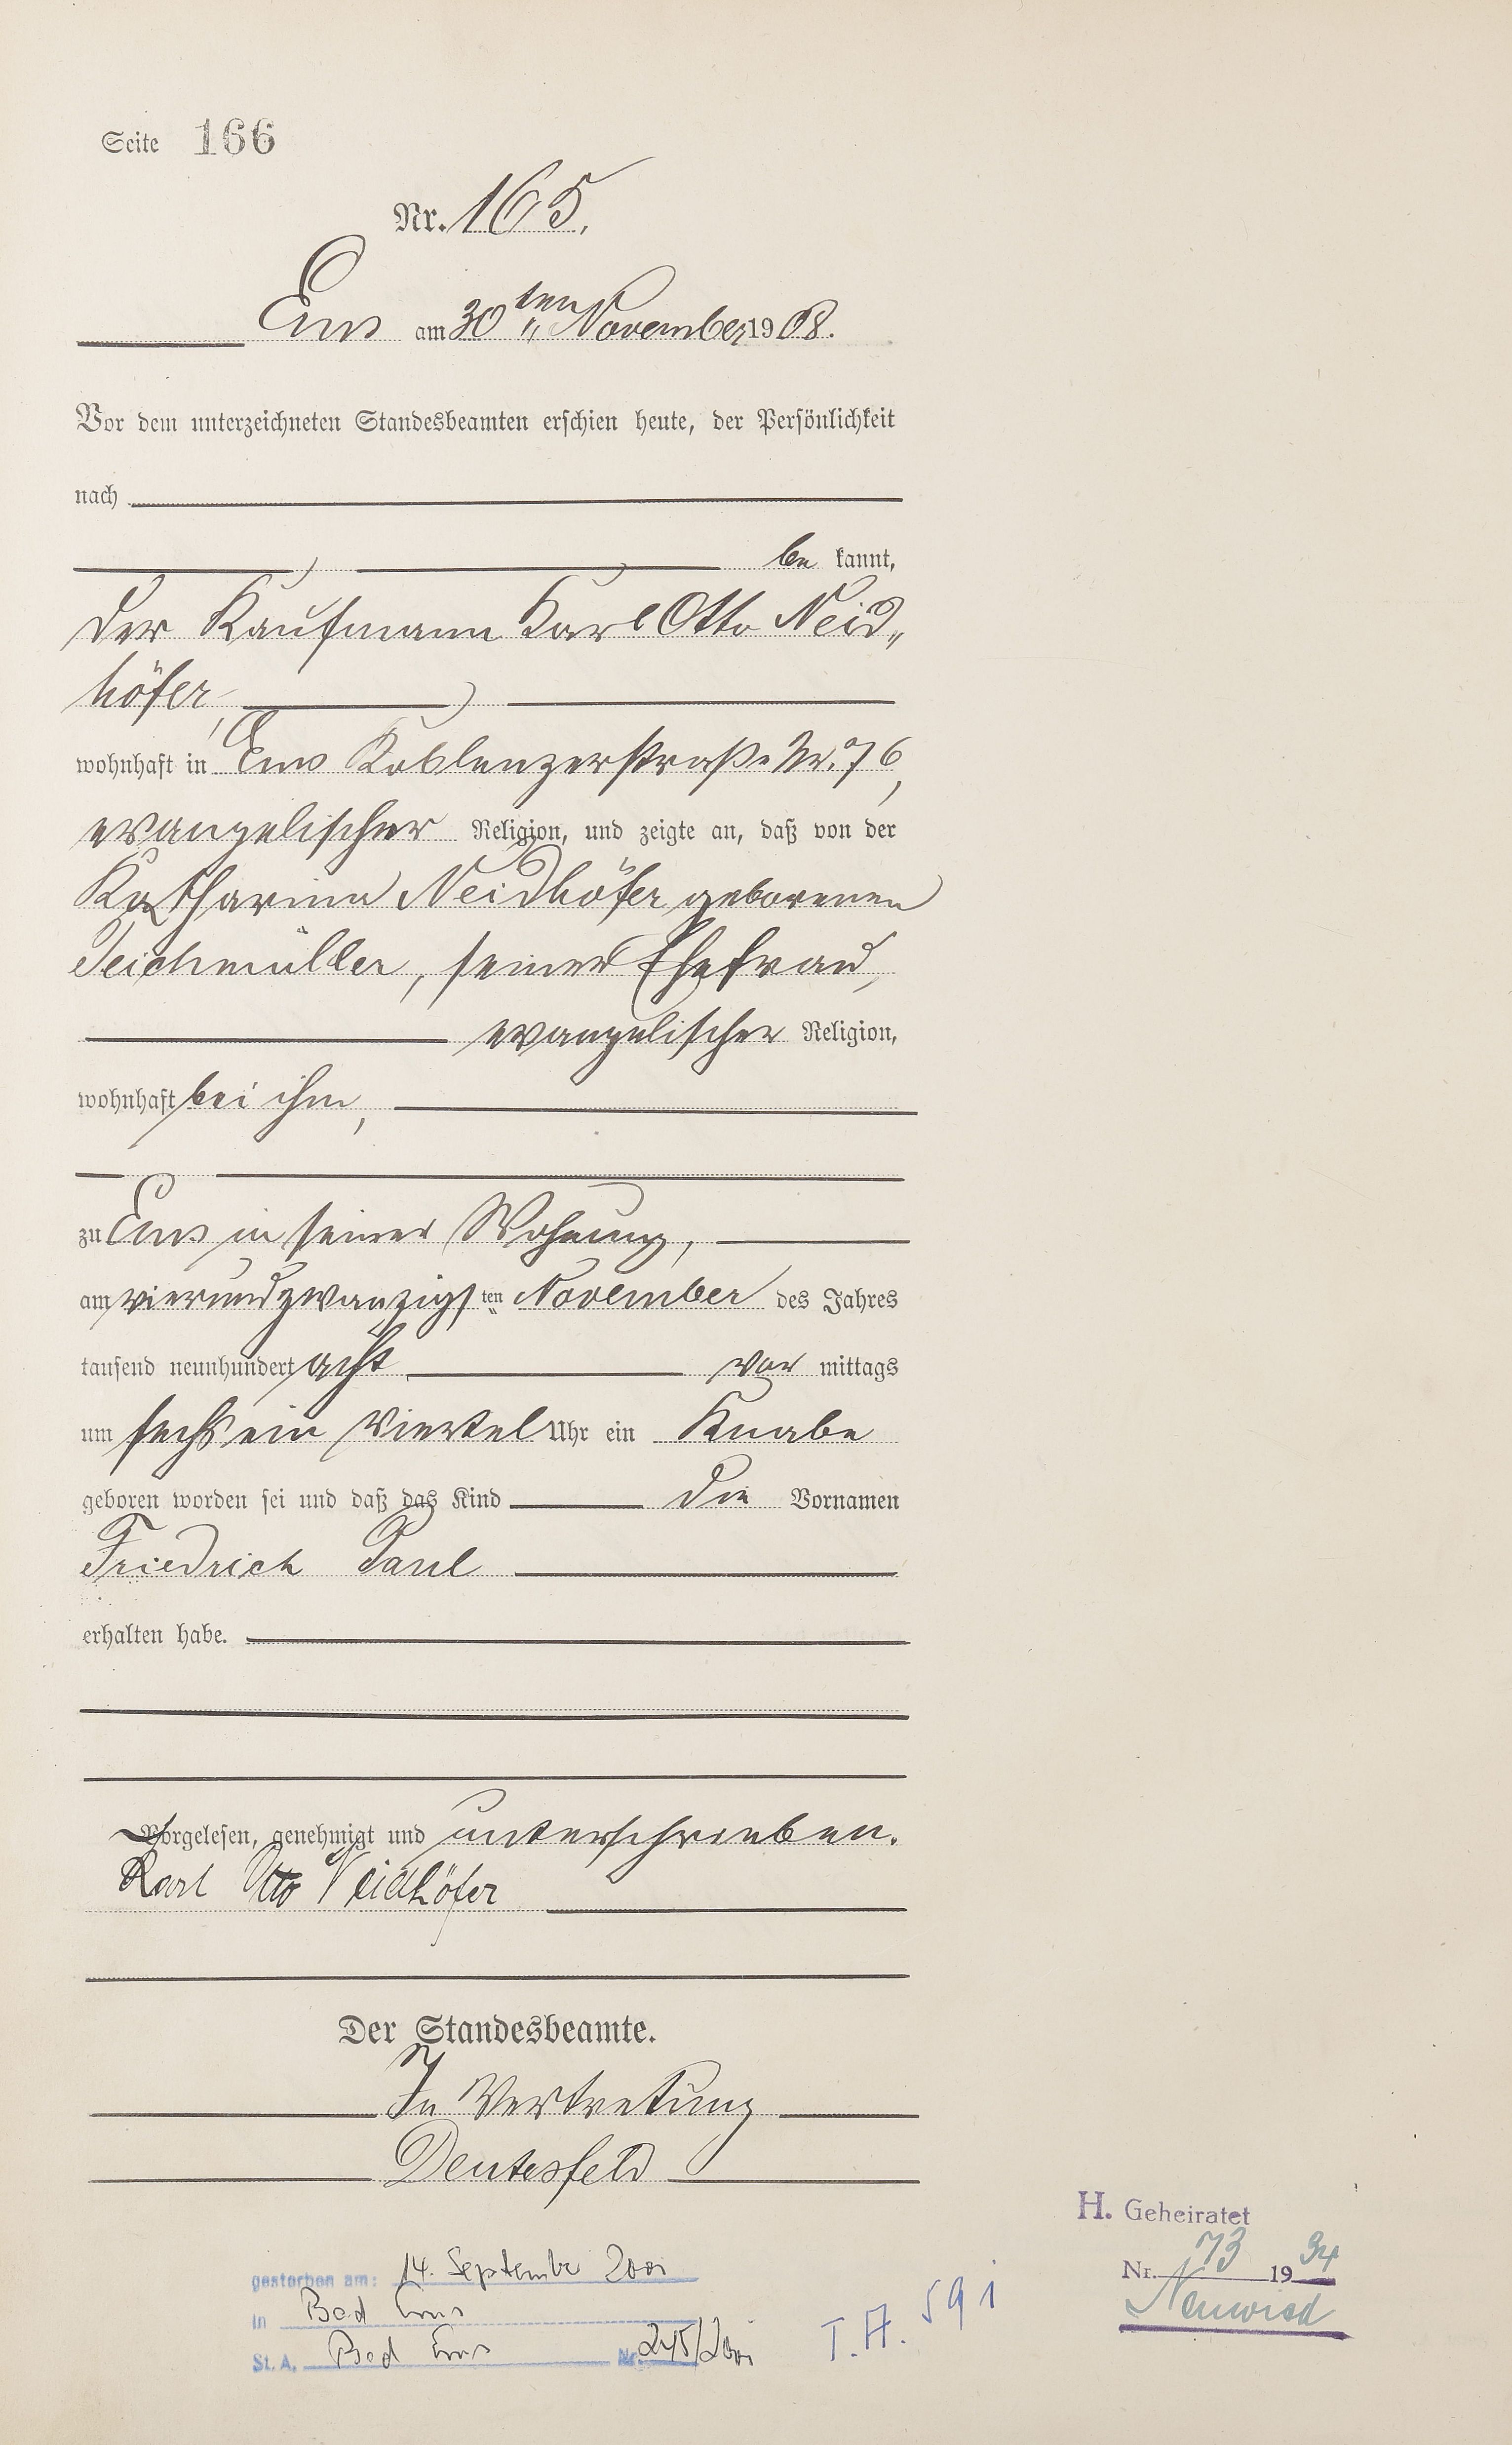 Seite 166
Nr. 165.
Ems am 30ten November 1908.
Vor dem unterzeichneten Standesbeamten erschien heute, der Persönlichkeit
nach
be kannt,
der Kaufmann Karl Otto Neid„
höfer,
wohnhaft in Ems Koblenzerstraße Nr. 76,
evangelischer Religion, und zeigte an, daß von der
Katharina Neidhöfer geborenen
Teichmüller, seiner Ehefrau,
evangelischer Religion,
wohnhaft bei ihm,
zu Ems in seiner Wohnung,
am vierundzwanzigsten November des Jahres
tausend neunhundert acht vor mittags
um sechs ein Viertel Uhr ein Knabe
geboren worden sei und daß das Kind die Vornamen
Friedrich Paul
erhalten habe.
Vorgelesen, genehmigt und unterschrieben.
Karl Otto Neidhöfer
Der Standesbeamte.
In Vertretung
Deutesfeld
H. Geheiratet
Nr. 73 1934
Neuwied
gestorben am: 14. September 2001
in Bad Ems
St. A. Bad Ems Nr. 245/2001
T. A. 591